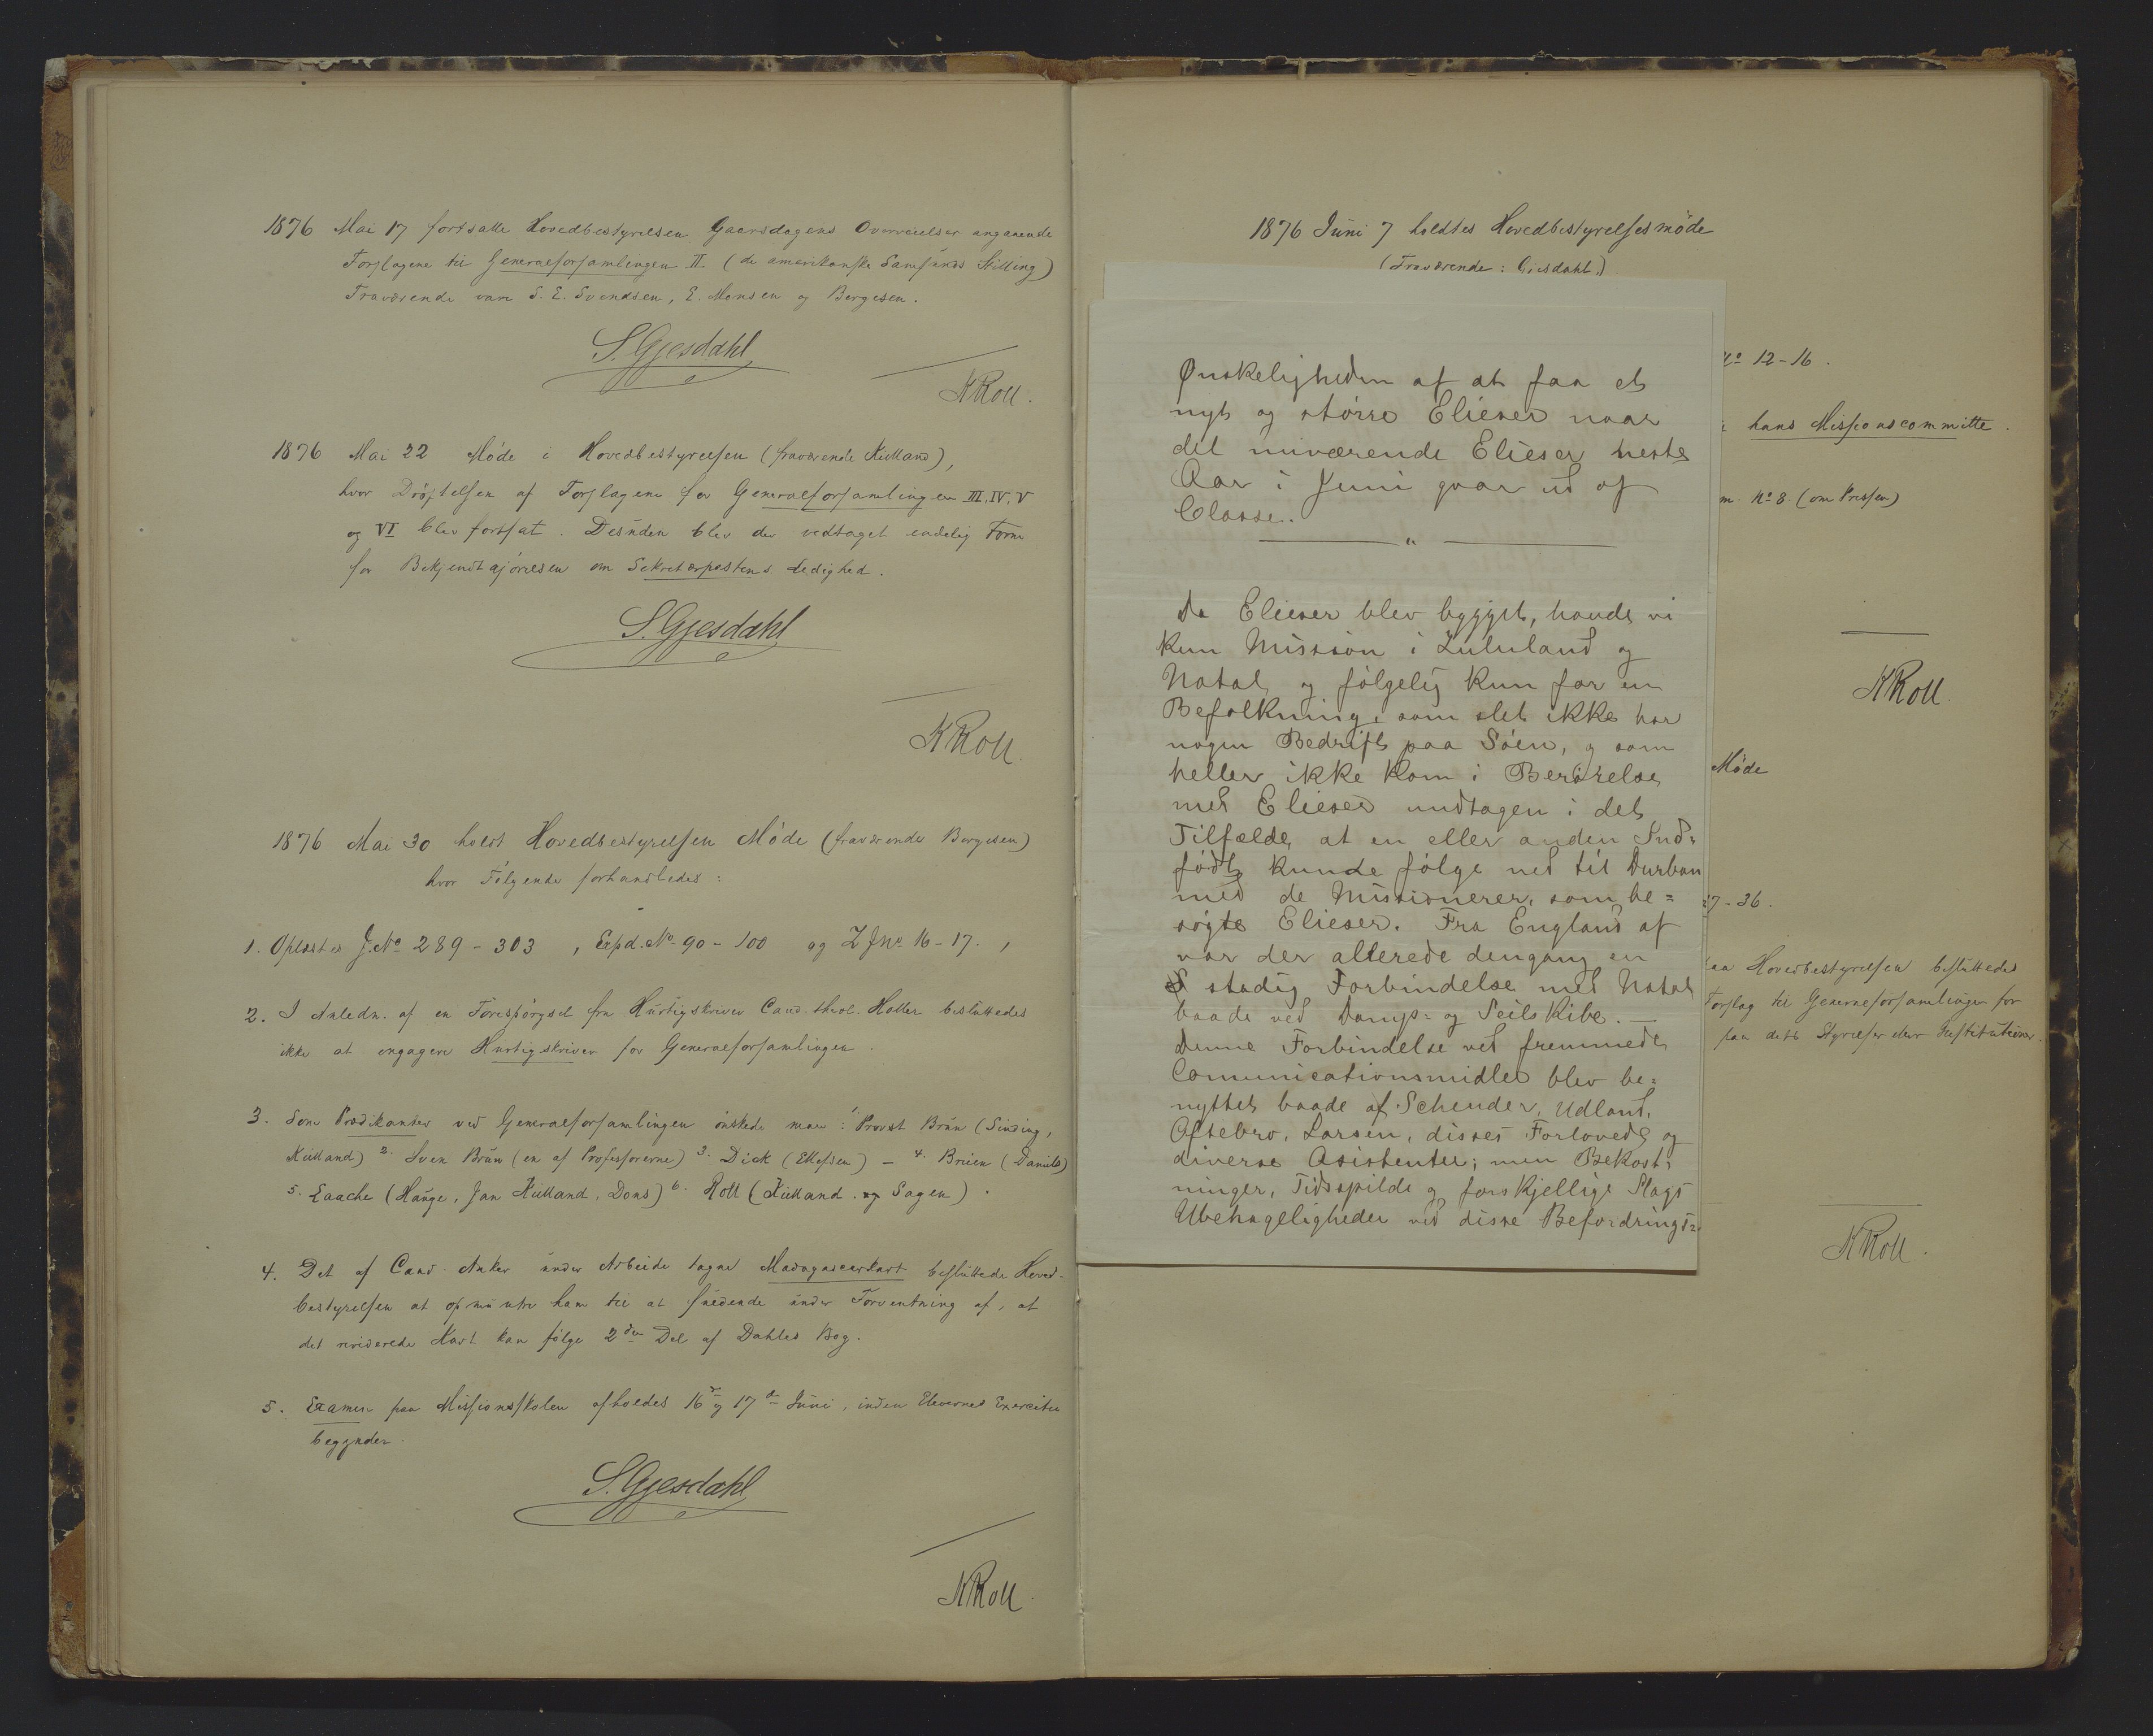 1876 Mai 17 fortsatte Hovedbestyrelsen Gaarsdagens Overveielser angaaende
Forslagene til Generalforsamlingen II (de amerikanske Samfunds Stilling)
Fraværende vare S. E. Svendsen, E. Monsen og Borgesen.
S. Gjesdahl
KRoll.
1876 Mai 22 Möde i Hovedbestyrelsen (fraværende Kielland),
hvor Dröftelsen af Forslagene for Generalforsamlingen III, IV, V
og VI blev fortsat. Desuden blev der vedtaget endelig Form
for Bekjendtgjörelsen om Sekretærpostens Ledighed.
S. Gjesdahl
KRoll.
1876 Mai 30 holdt Hovedbestyrelsen Möde (fraværende Borgesen)
hvor Fölgende forhandledes:
1. Oplæstes J.No 289-303, Expd. No 90-100 og Z J No 16-17.,
2. I Anledn. af en Forespörgsel fra Hurtigskriver Cand. theol. Halter besluttedes
ikke at engagere Hurtigskriver for Generalforsamlingen.
3. Som Prædikanter ved Generalforsamlingen önskede man: 1. Provst Brun (Sinding,
Kielland) 2. Sven Brun (en af Professorerne) 3. Dick (Ellefsen) – 4. Breien (Daniels)
5. Laache (Hauge, Jan Kielland, Dons) 6. Roll (Kielland og Sagen).
4. Det af Cand. Anker under Arbeide tagne Madagascarkart besluttede Hoved-
bestyrelsen at opmuntre ham til at fuldende under Forventning af, at
det reviderede Kart kan fölge 2den Del af Dahles Bog.
5. Examen paa Missionsskolen afholdes 16 og 17 Juni, inden Elevernes Exercitie
begynder.
S. Gjesdahl
KRoll.
1876 Juni 7 holdtes Hovedbestyrelsesmöde
(Fraværende: Gjesdahl.)
No 12-16.
hans Missionscommitte.
No 8. (om Pressen)
KRoll.
Möde
27-36.
Hovedbestyrelsen besluttedes
Forslag til Generalforsamlingen for
paa dets Styrelse eller Institutioner.
KRoll.
Ønskeligheden af at faa et
nyt og större Elieser naar
det nuværende Elieser neste
Aar i Juni gaar ud af
Classe.
"
Da Elieser blev bygget, havde vi
kun Mission i Zululand og
Natal, og fölgelig kun for en
Befolkning, som slet ikke har
nogen Bedrift paa Söen, og som
heller ikke kom i Berörelse
med Elieser undtagen i det
Tilfælde, at en eller anden Ind=
födt kunde fölge ned til Durban
med de Missionerer, som be=
sögte Elieser. Fra England af
var der allerede dengang en
stadig Forbindelse med Natal
baade ved Damp- og Seilskibe. —
Denne Forbindelse ved fremmede
Comunicationsmidler blev be=
nyttet baade af Schreuder, Udland,
Oftebro, Larsen, disses Forlovede og
diverse Asistenter; men Bekost=
ninger, Tidsspilde og forskjellige Slags
Ubehageligheder ved disse Befordrings=